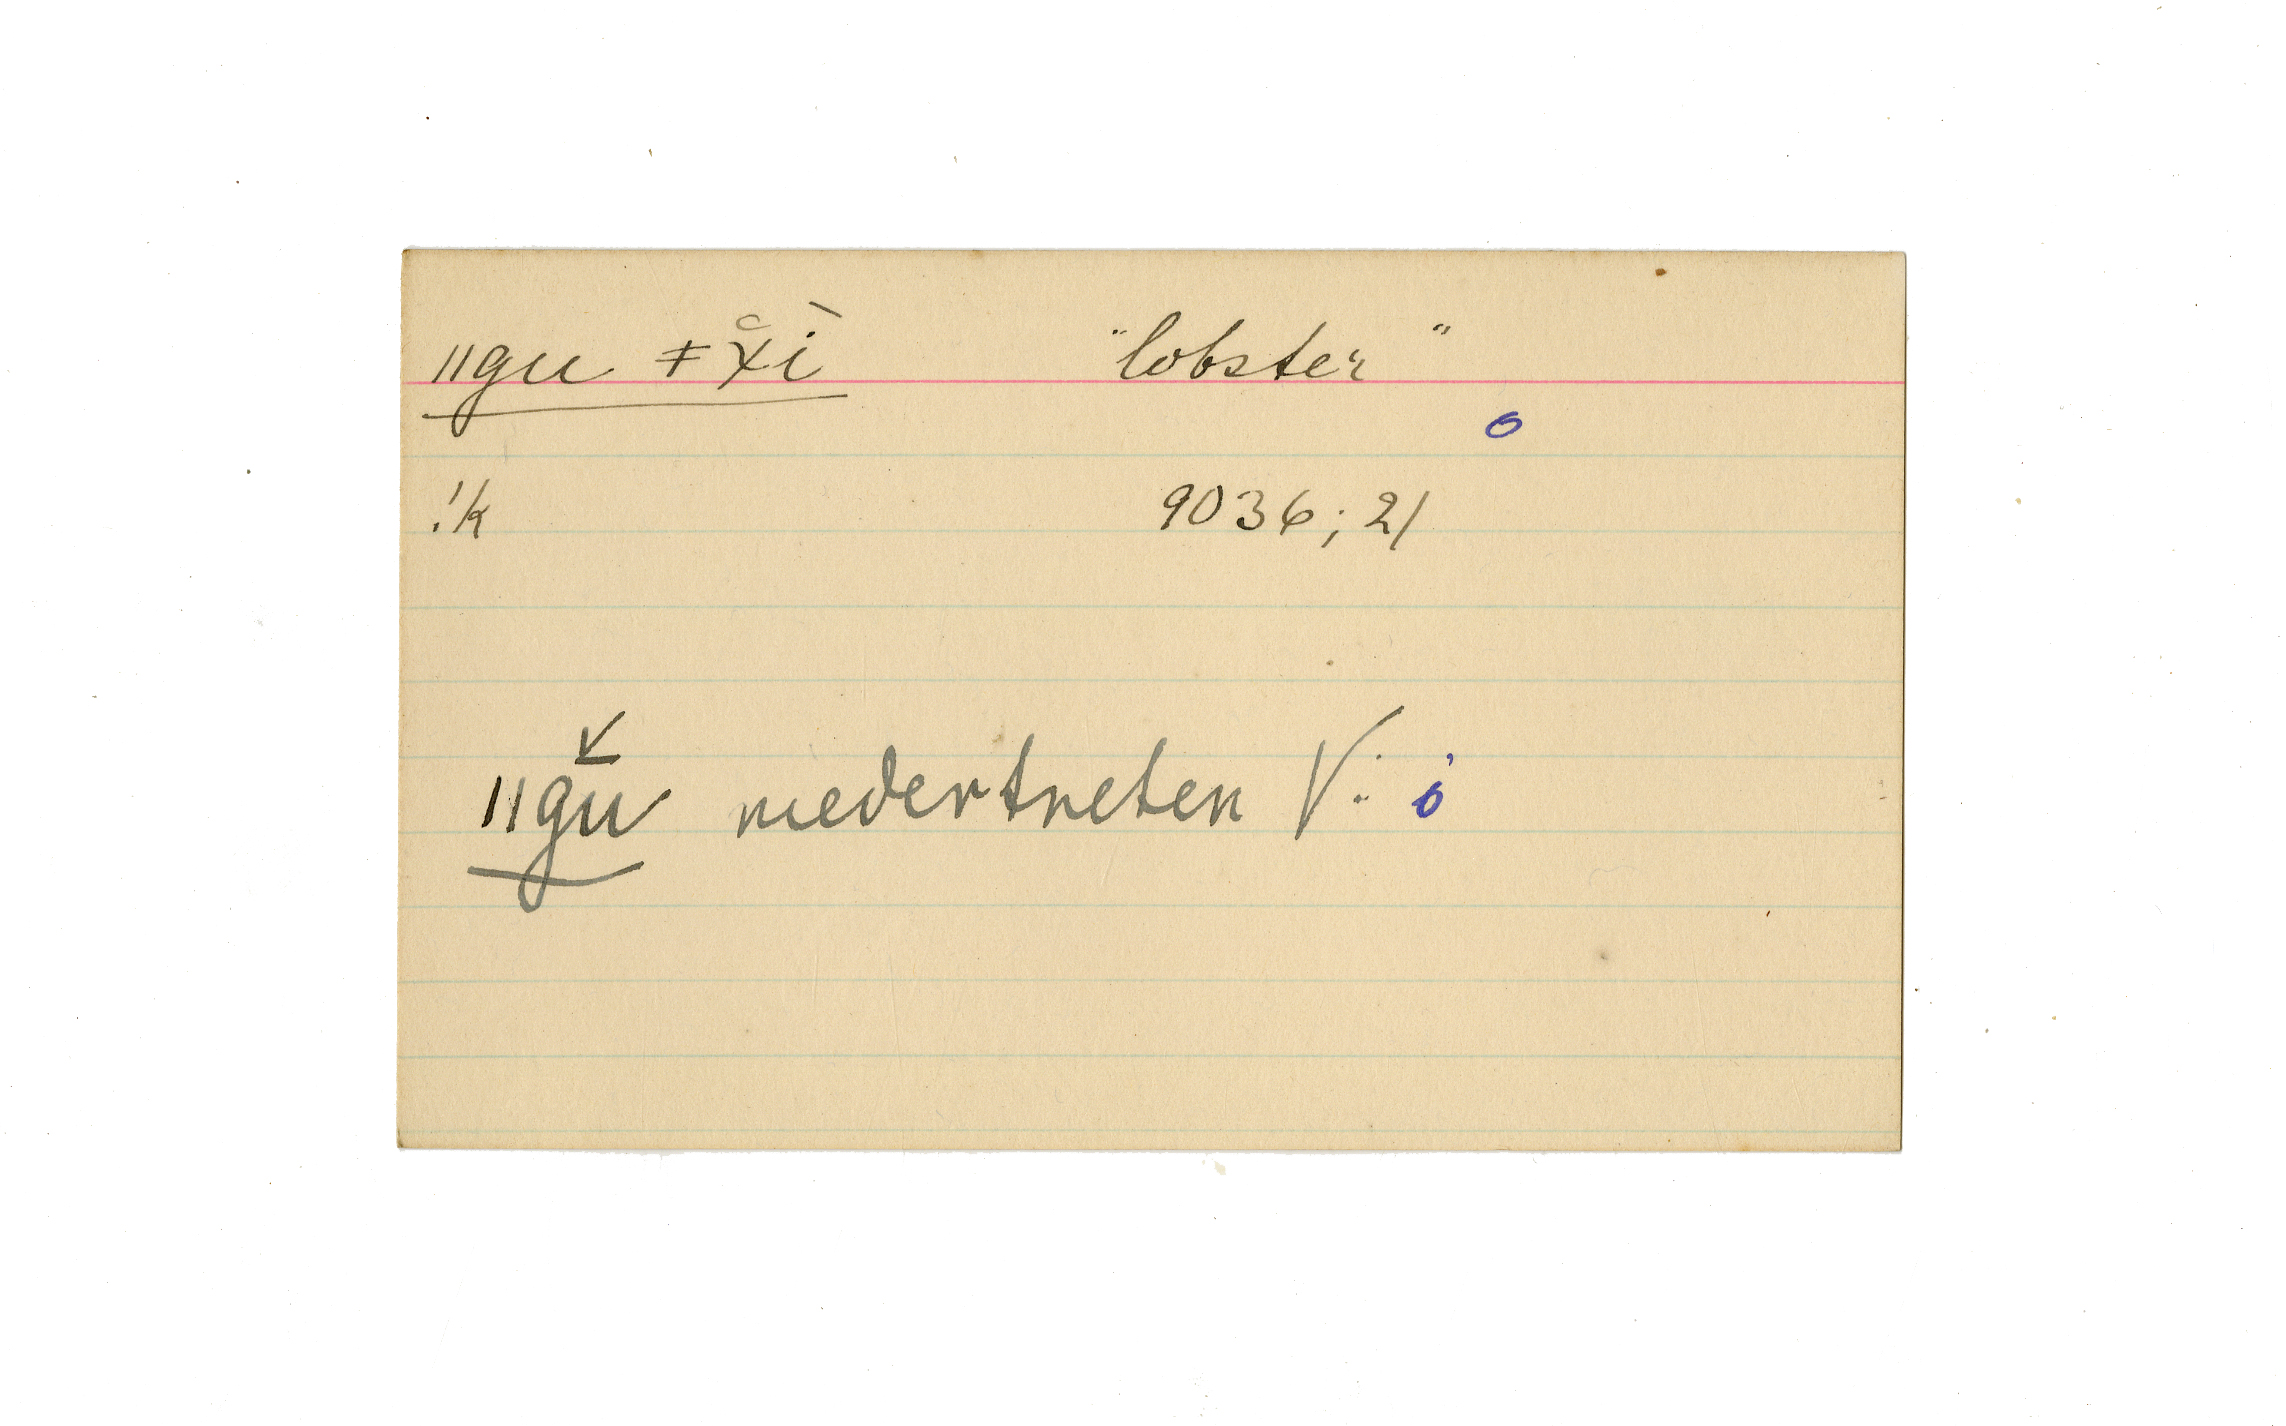 ǁgu ǂx̆ì "lobster"
o
!k 9036; 21
ǁgu niedertreten V: o'